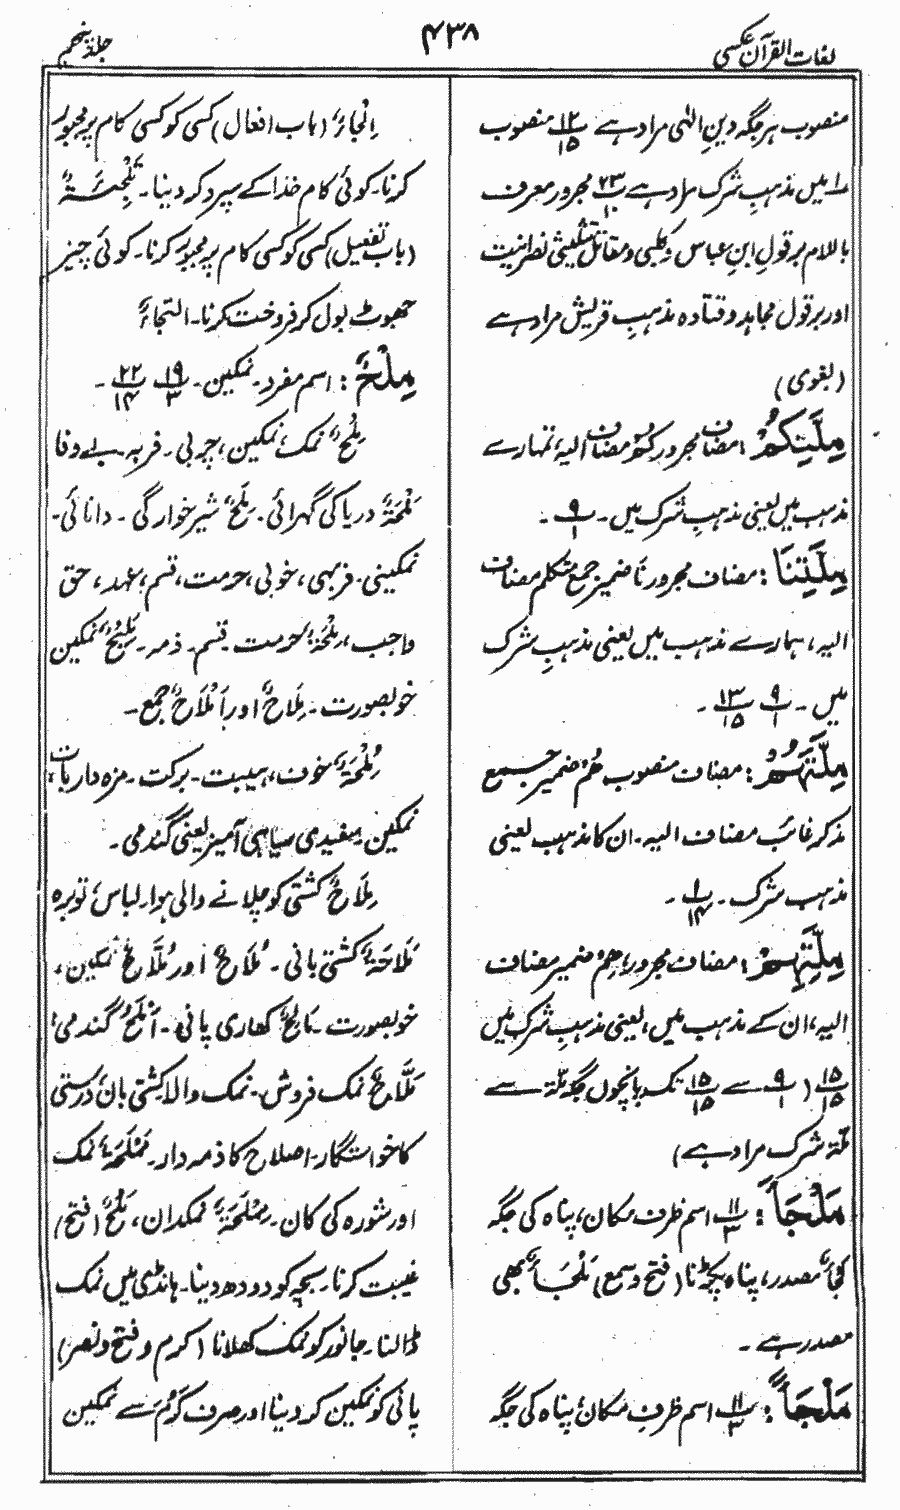 لغات القرآن عکسی
۴۳۸
جلد پنجم
منصوب ہر جگہ دینِ الٰہی مراد ہے پ۱۲/۱۵ منصوب
را میں مذہبِ شرک مراد ہے پ۲۳/۱۰ مجرور معرف
باللام بر قولِ ابنِ عباس و کلبی و مقاتل تثلیثی نصرانیت
اور بر قول مجاہد و قتادہ مذہبِ قریش مراد ہے
(بغوی)
مِلَّتِکُمْ: مضاف مجرور کُمْ مضاف الیہ، تمہارے
مذہب میں یعنی مذہبِ شرک میں۔ پ۹/۱۔
مِلَّتِنَا: مضاف مجرور نَا ضمیر جمع متکلم مضاف
الیہ، ہمارے مذہب میں یعنی مذہبِ شرک
میں۔ پ۹/۱ پ۱۳/۱۵۔
مِلَّتَهُمْ: مضاف منصوب هُمْ ضمیر جمع
مذکر غائب مضاف الیہ۔ ان کا مذہب یعنی
مذہب شرک۔ پ۱/۱۴۔
مِلَّتِهِمْ: مضاف مجرور، هِمْ ضمیر مضاف
الیہ، ان کے مذہب میں، یعنی مذہبِ شرک میں
پ۱۵/۱۵ (پ۹/۱ سے پ۱۵/۱۵ تک پانچوں جگہ ملّۃ سے
ملّۃ شرک مراد ہے)
مَلْجَأً: پ۱۱/۳ اسم ظرف مکان، پناہ کی جگہ
لَجَأٌ مصدر، پناہ پکڑنا (فتح و سمع) مَلْجَأٌ بھی
مصدر ہے۔
مَلْجَأَ: پ۱۱/۳ اسم ظرفِ مکان پناہ کی جگہ
اِلْجَاءٌ (باب افعال) کسی کو کسی کام پر مجبور
کرنا۔ کوئی کام خدا کے سپرد کر دینا۔ تَلْجِئَةٌ
(باب تفعیل) کسی کو کسی کام پر مجبور کرنا۔ کوئی چیز
جھوٹ بول کر فروخت کرنا۔ التجاءٌ
مِلْحٌ: اسم مفرد۔ نمکین۔ پ۱۹/۳ پ۲۲/۱۴۔
مِلْحٌ نمک، نمکین، چربی۔ فربہ۔ بے وفا
مَلْحَةٌ دریا کی گہرائی۔ مِلْحٌ شیر خوارگی۔ دانائی۔
نمکینی۔ فربہی، خوبی، حرمت، قسم، عہد، حق
واجب، مِلْحَةٌ حرمت۔ قسم۔ ذمہ۔ مَلِیْحٌ نمکین
خوبصورت۔ مِلَاحٌ اور اَمْلَاحٌ جمع۔
مُلْحَةٌ خوف، ہیبت۔ برکت۔ مزہ دار بات،
نمکین سفیدی سیاہی آمیز یعنی گندمی۔
مِلَاحٌ کشتی کو چلانے والی ہوا۔ لباس توبرہ
مَلَاحَةٌ کشتی بانی۔ مُلَاحٌ اور مُلَّاحٌ نمکین،
خوبصورت۔ مَالِحٌ کھاری پانی۔ اَمْلَحُ گندمی
مَلَّاحٌ نمک فروش۔ نمک والا کشتی بان درستی
کا خواستگار۔ اصلاح کا ذمہ دار۔ مَمْلَحَةٌ نمک
اور شورہ کی کان۔ مِمْلَحَةٌ نمکدان، مَلْحٌ (فتح)
غیبت کرنا۔ بچہ کو دودھ دینا۔ ہانڈی میں نمک
ڈالنا۔ جانور کو نمک کھلانا (کرم و فتح و نصر)
پانی کو نمکین کر دینا اور صرف کَرُمَ سے نمکین